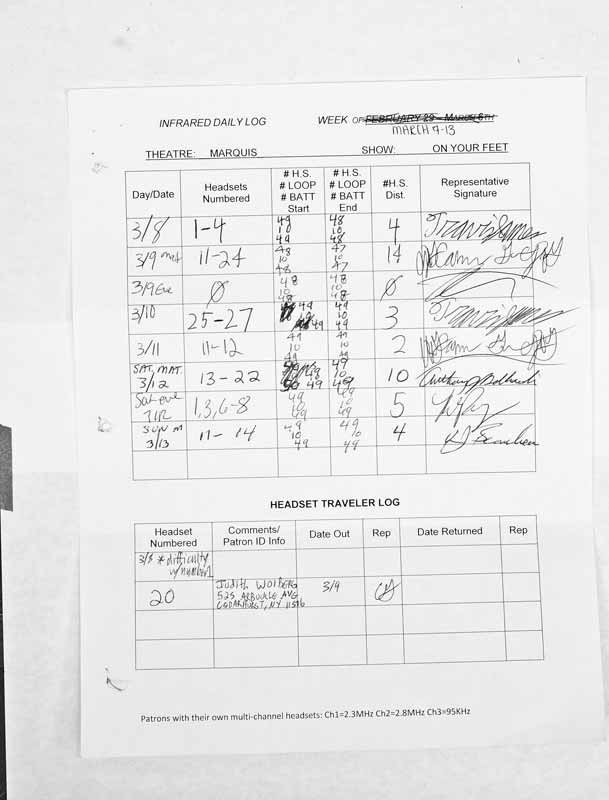 INFRARED DAILY LOG WEEK OF FEBRUARY 29 – MARCH 6TH
MARCH 7-13
THEATRE: MARQUIS SHOW: ON YOUR FEET
Day/Date Headsets Numbered # H.S. # LOOP # BATT Start # H.S. # LOOP # BATT End #H.S. Dist. Representative Signature
3/8 1-4 49 10 49 48 10 48 4 Travis James
3/9 mat 11-24 48 10 48 47 10 47 14
3/9 Eve Ø 48 10 48 48 10 48 Ø
3/10 25-27 49 49 49 10 49 3 Travis James
3/11 11-12 49 10 49 49 10 49 2
SAT. MAT. 3/12 13-22 49 49 49 10 49 10 Anthony
Sat eve 1,3,6-8 49 10 49 49 10 49 5
SUN M 3/13 11-14 49 10 49 49 10 49 4
HEADSET TRAVELER LOG
Headset Numbered Comments/ Patron ID Info Date Out Rep Date Returned Rep
3/8 * difficulty w/ number
20 Judith WOLBERG 3/9
525 ARBUCKLE AVE
CEDARHURST, NY 11516
Patrons with their own multi-channel headsets: Ch1=2.3MHz Ch2=2.8MHz Ch3=95KHz